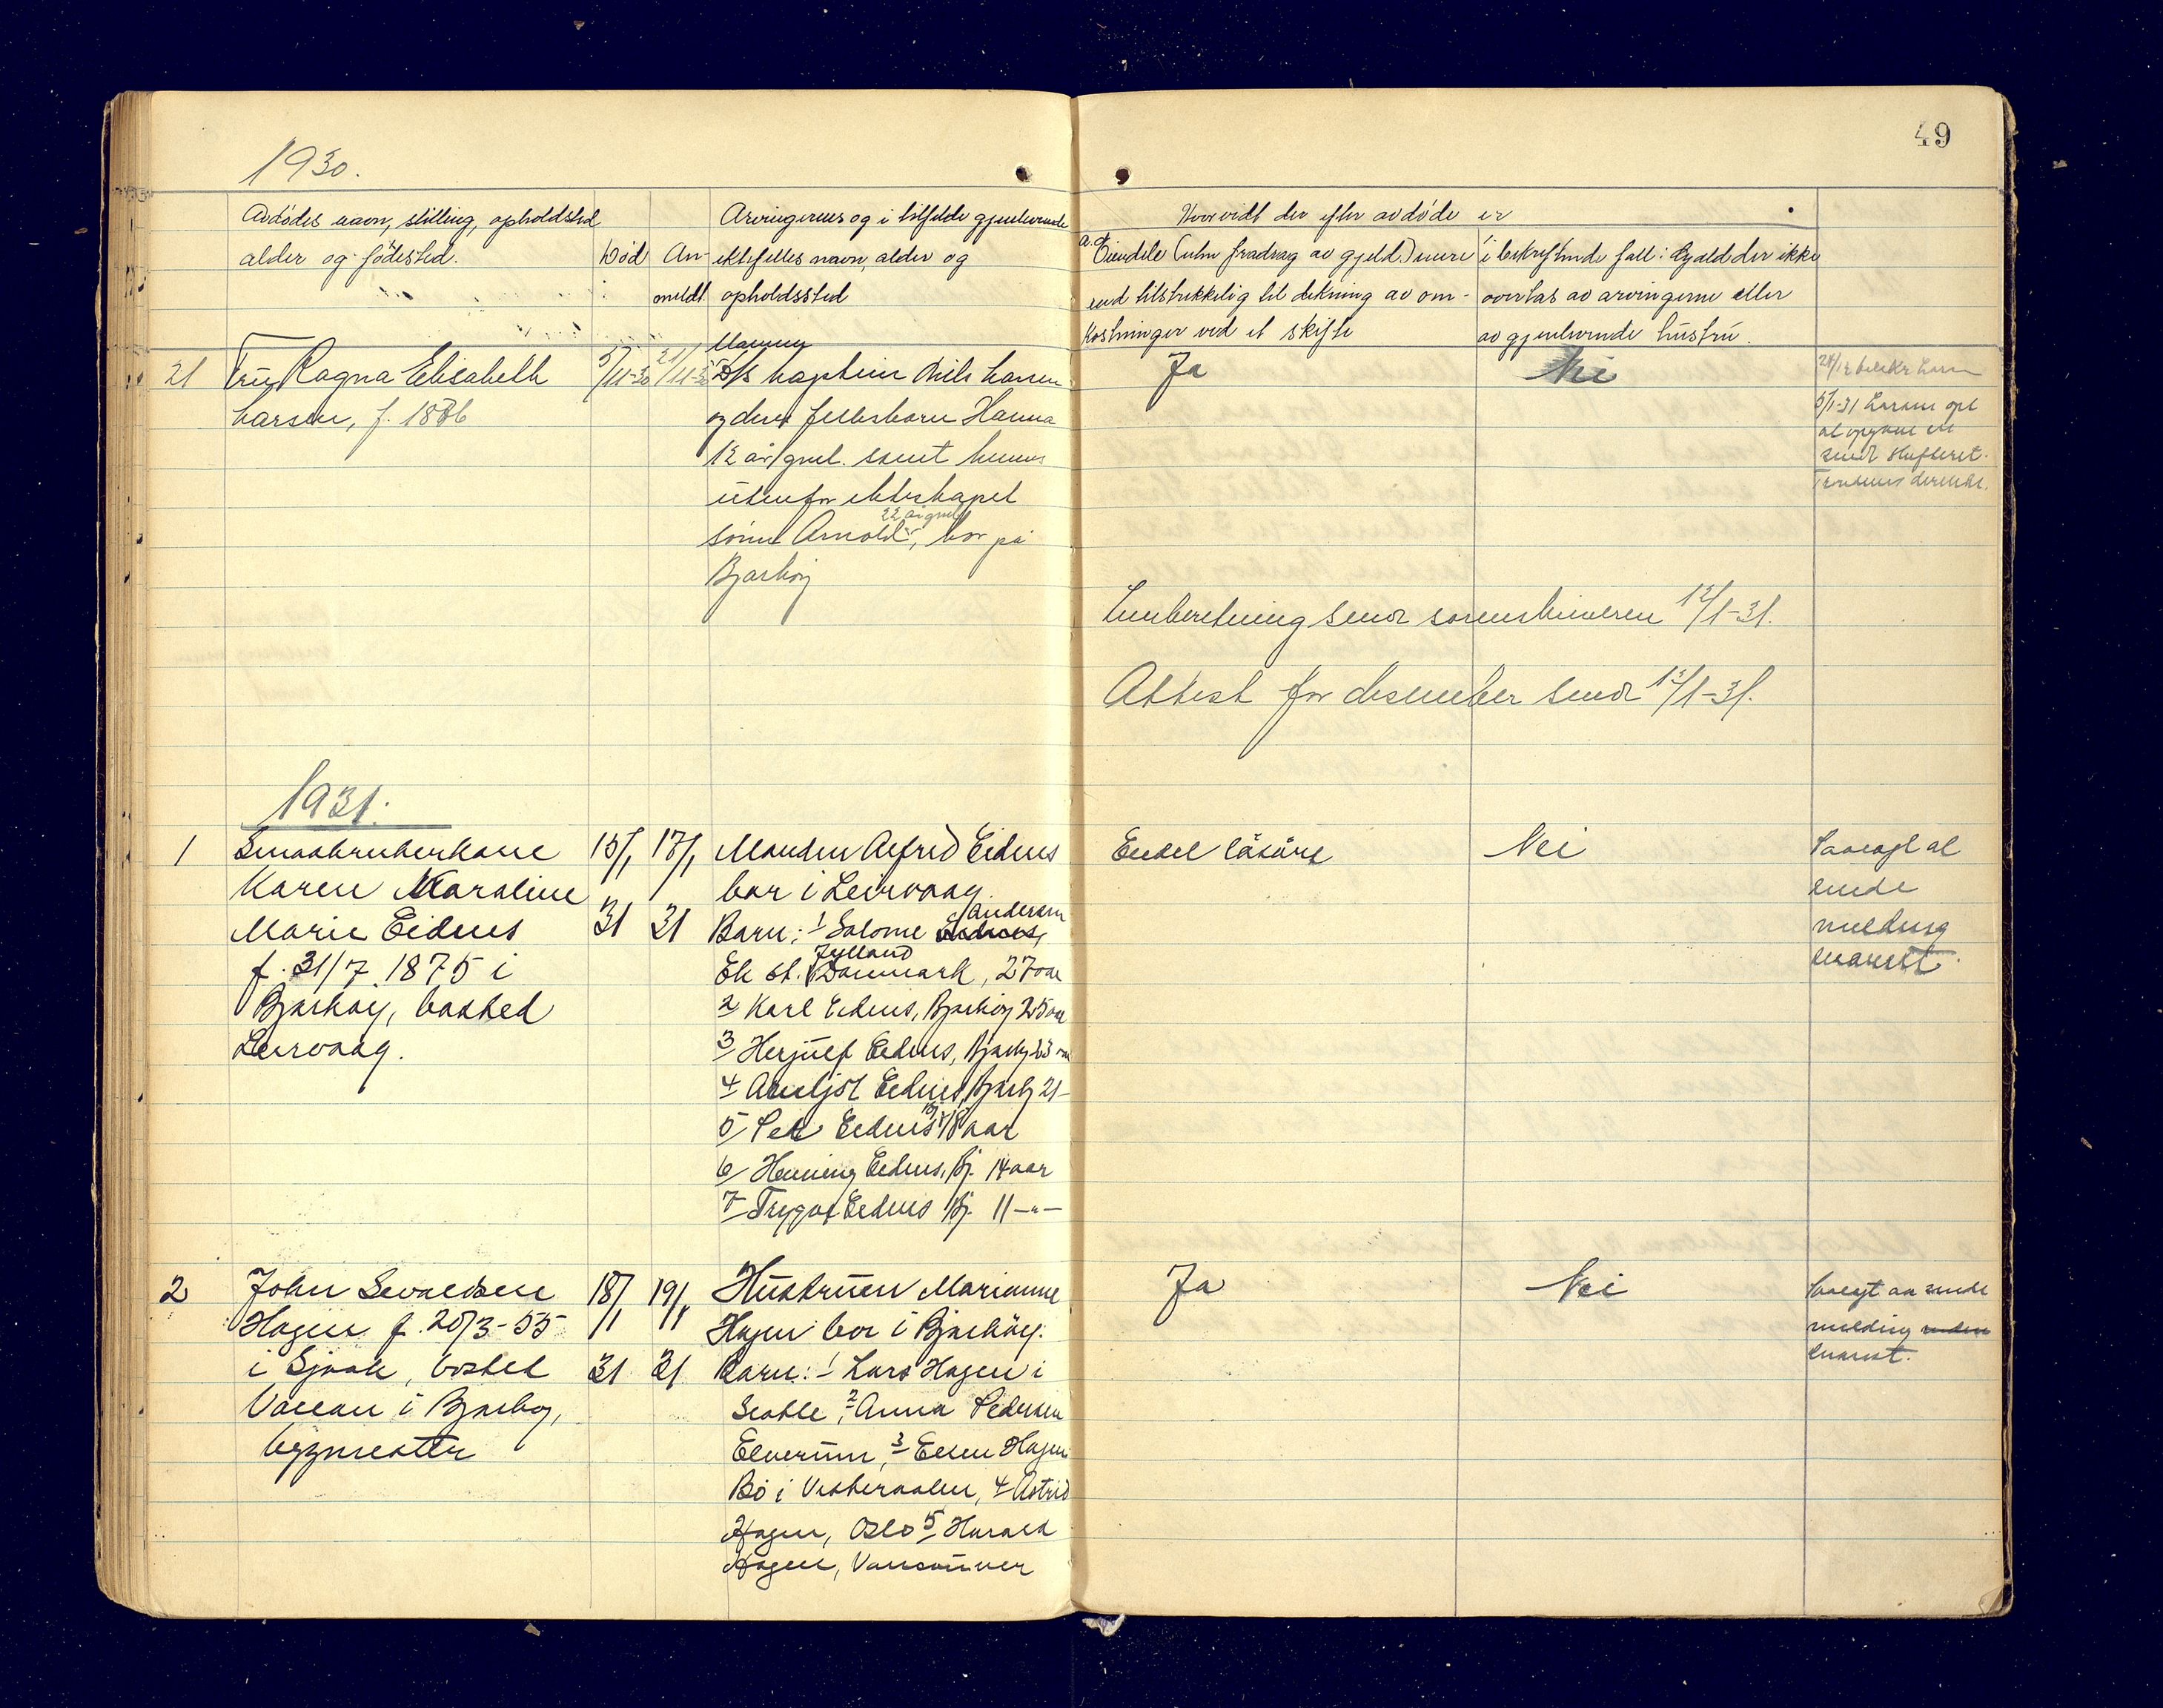 49
1930.
Avdödes navn, stilling, opholdsted
alder og födested.
Död
An-
meldt.
Arvingernes og i tilfelde gjenlevende
ektefelles navn, alder og
opholdssted
Hvorvidt der efter avdöde er
a. Eiendele (uten fradrag av gjeld) mere
end tilstrekkelig til dekning av om-
kostninger ved et skifte
i bekreftende fall: Gjeld der ikke
overtas av arvingerne eller
av gjenlevende hustru.
21
Fru Ragna Elisabeth
Larsen, f. 1886
5/11-30
21/11-30
Mannen
D/S kaptein Nils Larsen
og deres fellesbarn Hanna
12 år gml. samt hennes
utenfor ekteskapet
22 år gml
sönn Arnold, bor på
Bjarköy
Ja
Nei
5/1-31 Larsen
sendt skifteret.
Innberetning sendt sorenskriveren 12/1-31.
Attest for desember sendt 12/1-31.
1931.
1
Smaabrukerkone
Karen Maraline
Marie Eidnes
f. 31/7 1875 i
Bjarköy, bosted
Leirvaag.
15/1
31
17/1
31
Manden Alfred Eidnes
bor i Leirvaag.
Barn: 1 Salome Eidnes, Andersen
Jylland
Ek st. Danmark, 27 aar
2 Karl Eidnes, Bjarköy 25 aar
3 Herjulf Eidnes, Bjarköy 23 aar
4 Arnljot Eidnes, Bjarköy 21 -
5 Peter Eidnes Bj. 18 aar
6 Henning Eidnes, Bj. 14 aar
7 Trygve Eidnes Bj. 11 -"-
Endel lösöre
Nei
Paalagt at
sende
melding
snarest.
2
John Sevaldsen
Hagen f. 20/3-55
i Sjaak, bosted
Vollan i Bjarköy,
bygmester
18/1
31
19/1
31
Hustruen Marianne
Hagen bor i Bjarköy.
Barn: 1 Lars Hagen i
Seatle, 2 Anna Pedersen
Elverum, 3 Ellen Hagen
Bö i Vesteraalen, 4 Astrid
Hagen, Oslo 5 Harald
Hagen, Vancouver
Ja
Nei
Paalagt aa sende
melding
snarest.